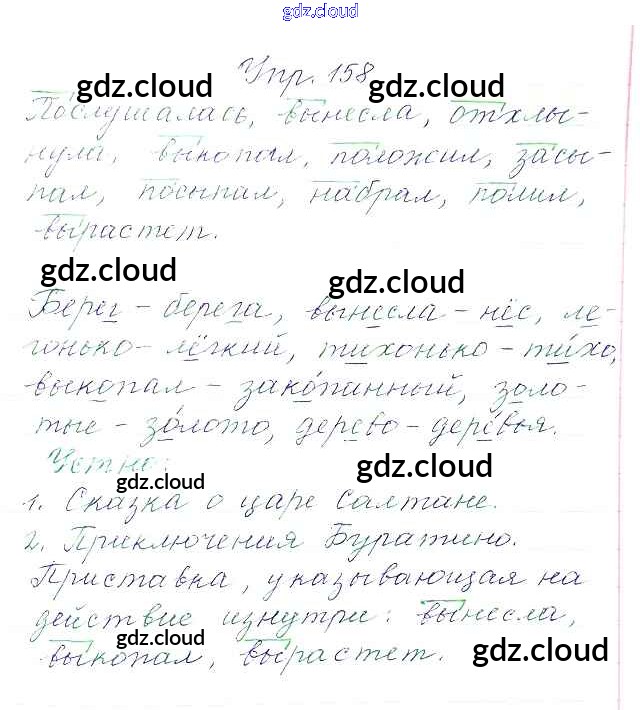 gdz.cloud
Упр. 158
gdz.cloud gdz.cloud
Послушалась, вынесла, отхлы-
gdz.cloud gdz.cloud
нула, выкопал, положил, засы-
пал, посыпал, набрал, полил,
вырастет.
gdz.cloud gdz.cloud
Берег - берега, вынесла - нёс, ле-
гонько - лёгкий, тихонько - тихо,
gdz.cloud gdz.cloud
выскопал - закопанный, золо-
тые - золото, дерево - деревья.
Устно:
gdz.cloud gdz.cloud
1. Сказка о царе Салтане.
2. Приключения Буратино.
Приставка, указывающая на
gdz.cloud gdz.cloud
действие изнутри: вынесла,
выкопал, вырастет.
gdz.cloud gdz.cloud